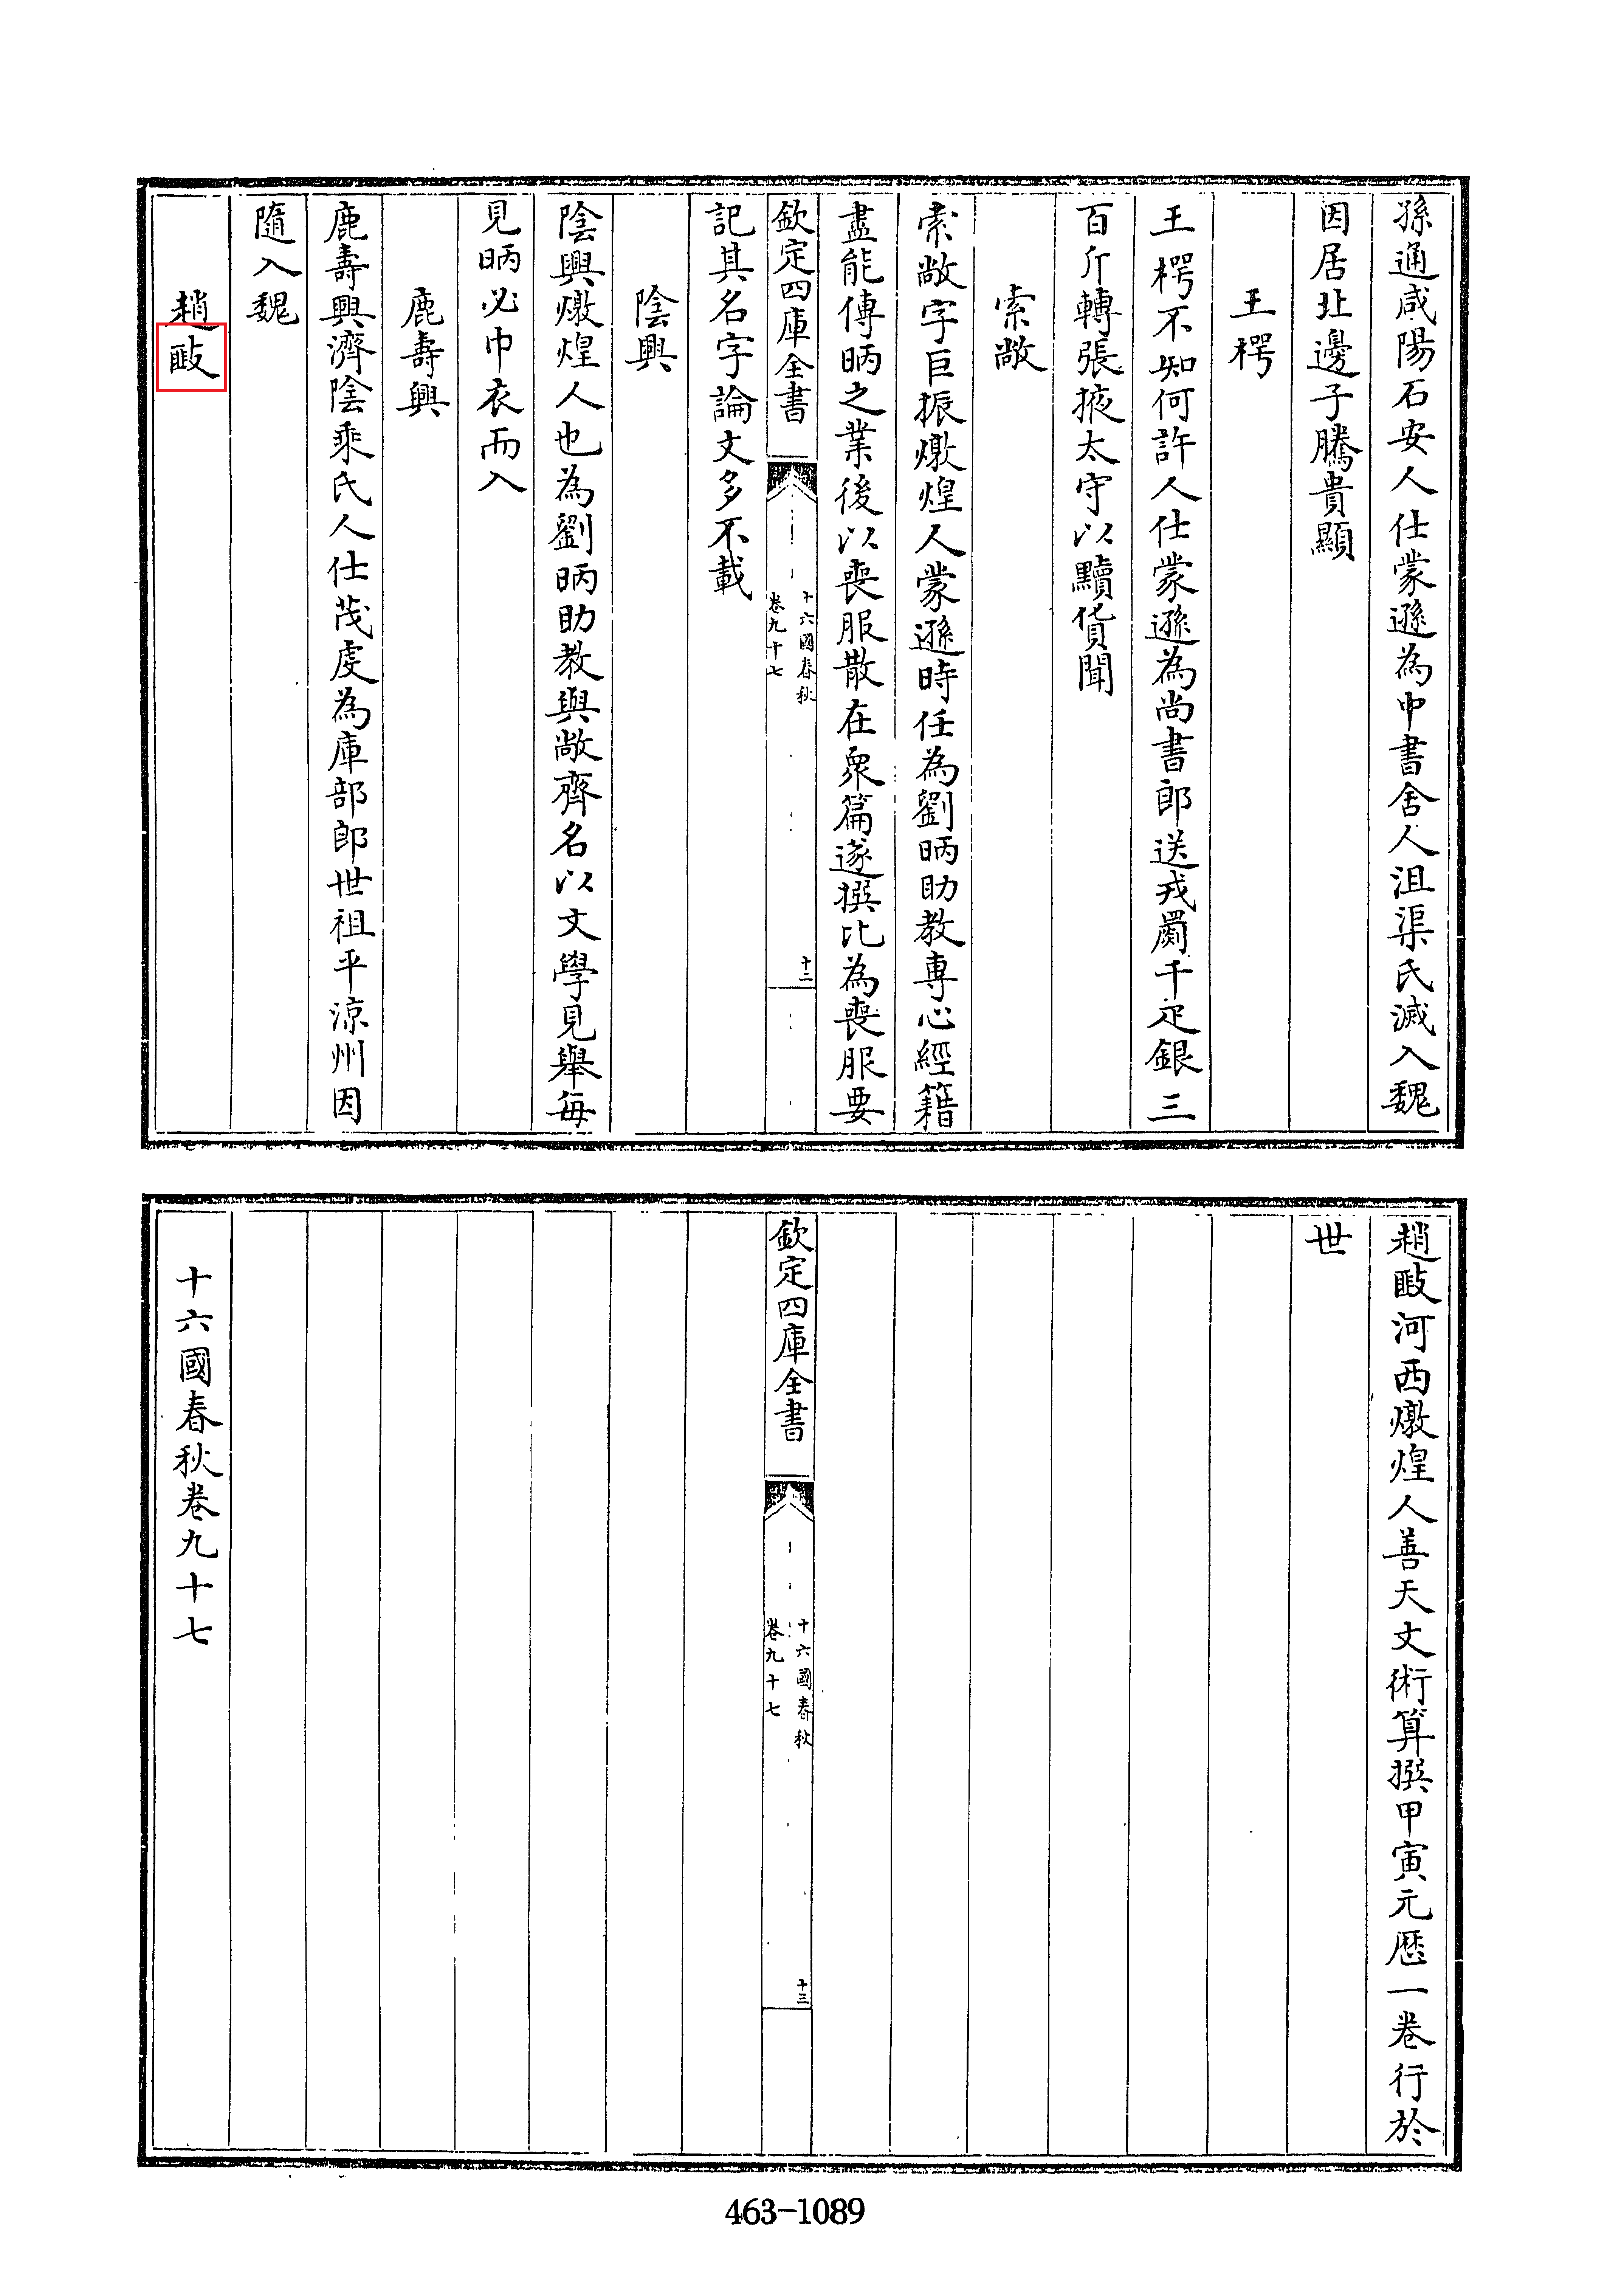 孫通咸陽石安人仕蒙遜為中書舍人沮渠氏滅入魏
因居北邊子騰貴顯
王楞
王楞不知何許人仕蒙遜為尚書郎送戎罽千疋銀三
百斤轉張掖太守以黷貨聞
索敞
索敞字巨振燉煌人蒙遜時任為劉昞助教專心經籍
盡能傳昞之業後以喪服散在衆篇遂撰比為喪服要
欽定四庫全書
十六國春秋
卷九十七
十二
記其名字論文多不載
陰興
陰興燉煌人也為劉昞助教與敞齊名以文學見舉每
見昞必巾衣而入
鹿壽興
鹿壽興濟陰乘氏人仕茂虔為庫部郎世祖平涼州因
隨入魏
趙𢾺
趙𢾺河西燉煌人善天文術算撰甲寅元歷一卷行於
世
欽定四庫全書
十六國春秋
卷九十七
十三
十六國春秋卷九十七
463-1089